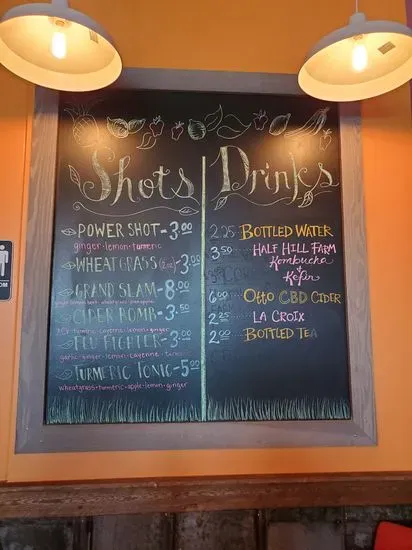 Shots
POWER SHOT - 3.00
ginger • lemon • turmeric
WHEATGRASS (2oz) - 3.00
GRAND SLAM - 8.00
CIDER BOMB - 3.50
ACV turmeric cayenne lemon ginger
FLU FIGHTER - 3.00
garlic • ginger • lemon • cayenne
TURMERIC TONIC - 5.00
wheatgrass • turmeric • apple • lemon • ginger
Drinks
2.25 BOTTLED WATER
3.50 HALF HILL FARM
Kombucha
+
Kefir
6.00 Otto CBD CIDER
2.25 LA CROIX
2.00 BOTTLED TEA
OM